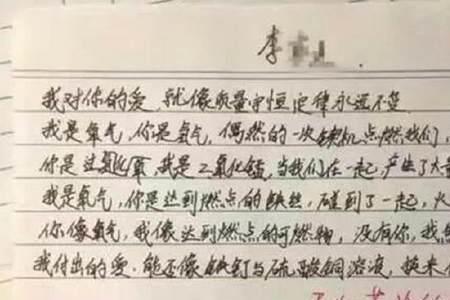 李
我对你的爱，就像质量守恒定律永远不变
我是氧气，你是氢气，偶然的一次契机点燃我们，
你是过氧化氢，我是二氧化锰，当我们在一起，产生了大量
我是氧气，你是达到燃点的铁丝，碰到了一起，火
你像氧气，我像达到燃点的可燃物，没有你，我
我付出的爱，能否像铁钉与硫酸铜溶液，换来